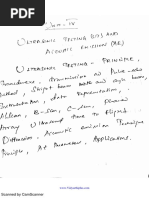 Unit - IV
ULTRASONIC TESTING (UT) AND
ACOUSTIC EMISSION (AE)
ULTRASONIC TESTING - PRINCIPLE,
Transducers, transmission and Pulse-echo
method, straight beam and angle beam,
Instrumentation, data representation,
A-Scan, B-scan, C-scan, Phased
Array Ultrasound time of Flight
Diffraction, Acoustic Emission Technique
Principle, AE Parameters, Applications.
Scanned by CamScanner